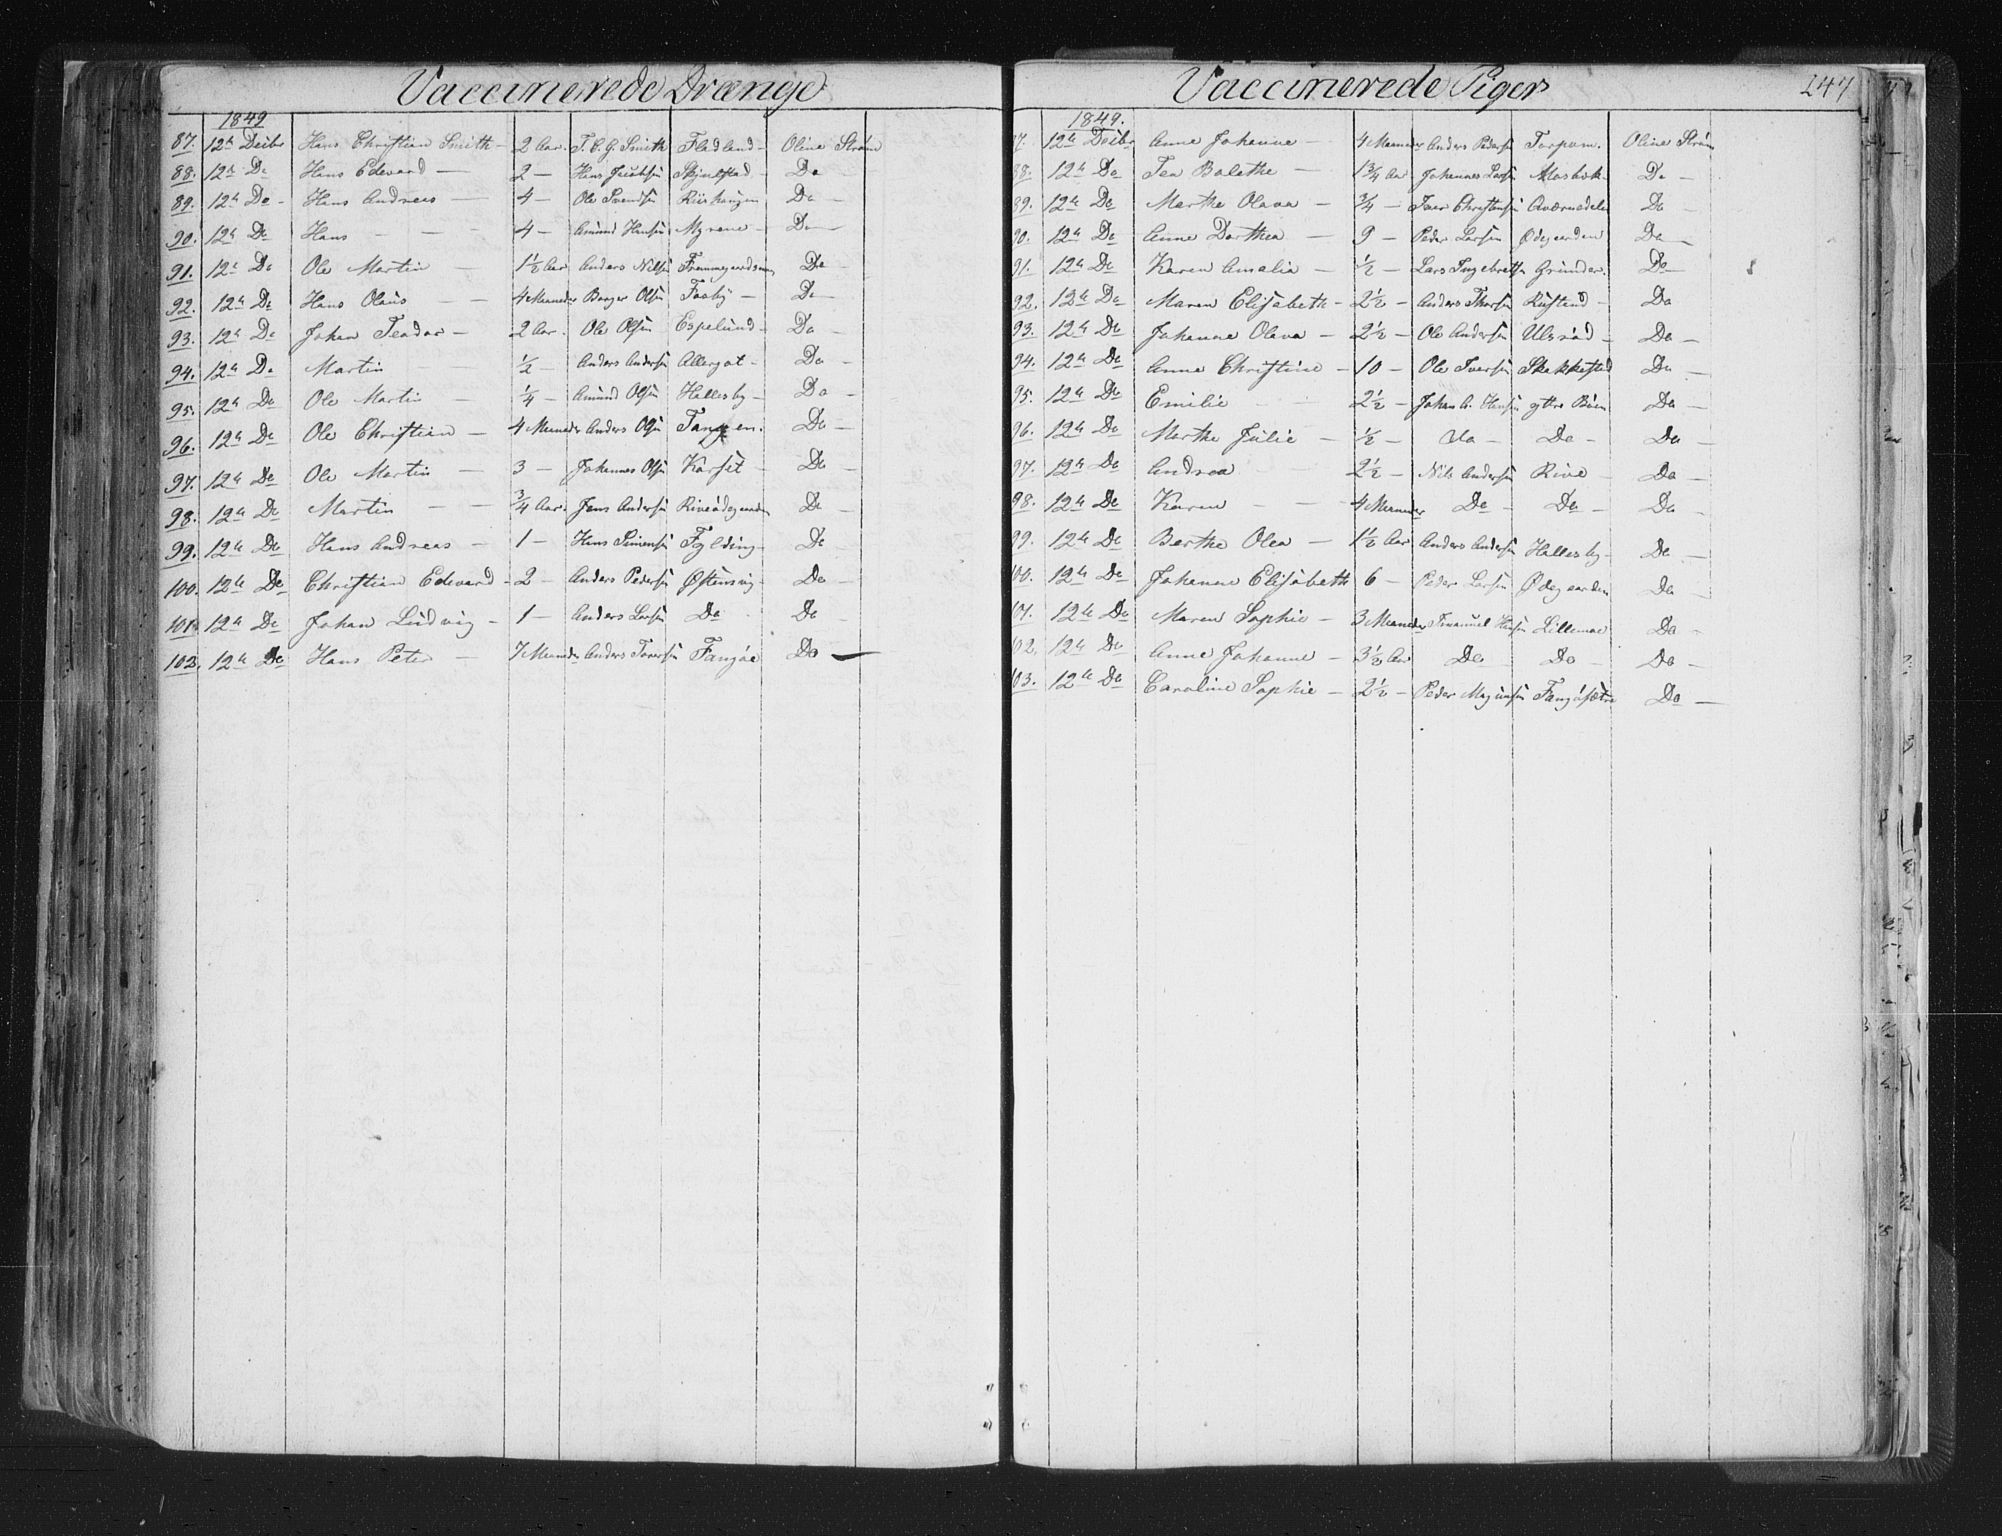 Vaccinerede Drænge
1849
87. 12te Decbr Hans Christian Smith - 2 Aar. T. C. G. Smith Fladland - Oline Strøm
88. 12te Do Hans Edevard - 2 - Hans Jacobsen Skjulstad - Do
89. 12te Do - Hans Andreas - 4 - Ole Svendsen Riishaugen Do -
90. 12te Do Hans - - - 4 - Amund Hansen Myrene - Do -
91. 12te Do Ole Martin - 1½ Aar Anders Nilsen Do
92. 12te Do Hans Olaus - 4 Maaneder Borger Olsen Fosby - Do -
93. 12te Do Johan Teodor - 2 Aar. Ole Olsen Espelund - Do -
94. 12te Do Martin ½ - Anders Andersen Allergot - Do -
95. 12te Do Ole Martin - ¼ - Amund Olsen Hallesby - Do -
96. 12te Do Ole Christian - 4 Maaneder Anders Olsen Tangen. Do -
97. 12te Do Ole Martin - 3 - Johannes Olsen Korset - Do -
98. 12te Do Martin - - ¾ Aar. Jens Andersen Riveødegaarden Do -
99. 12te Do Hans Andreas - 1 - Hans Simensen Fylding - Do -
100. 12te Do Christian Edevard - 2 - Anders Pedersen Østensvig - Do -
101. 12te Do Johan Ludvig - 1 - Anders Larsen Do Do -
102. 12te Do Hans Peter - 7 Maaneder Anders Iversen Fangøe Do -
Vaccinerede Piger
247
1849.
87. 12te Decbr Anne Johanne - 4 Maaneder Anders Pedersen Torpom. Oline Strøm
88. 12te Do Tea Bolethe - 1¾ Aar Johannes Larsen Mosbæk Do -
89. 12te Do Marthe Olava - ¾ - Iver Christensen Do -
90. 12te Do Anne Dorthea - 9 - Peder Larsen Ødegaarden Do -
91. 12te Do Karen Amalia - ½ - Lars Ingebretsen Grinder. Do -
92. 12te Do Maren Elisabeth - 2½ - Anders Thorsen Rustand - Do
93. 12te Do Johanne Olava - 2½ - Ole Andersen Ulsrød - Do -
94. 12te Do Anne Christine - 10 - Ole Iversen Skakkestad Do -
95. 12te Do Emilie - - 2½ - Johan A. Hansen yttre Bøen Do -
96. 12te Do Marthe Julie - ½ - Do - Do - Do -
97. 12te Do Andrea - 2½ - Nils Andersen Rive - Do -
98. 12te Do Karen - - 4 Maaneder Do - Do - Do -
99. 12te Do Berthe Olea - 1½ Aar Anders Andersen Hallesby - Do -
100. 12te Do Johanne Elisabeth 6 - Peder Larsen Ødegaarden Do -
101. 12te Do Maren Sophie - 3 Maaneder Emanuel Hansen Lillemoe Do -
102. 12te Do Anne Johanne - 3½ Aar Do - Do - Do -
103. 12te Do Caroline Sophie - 2½ - Peder Magnusen Fangøsætre Do -